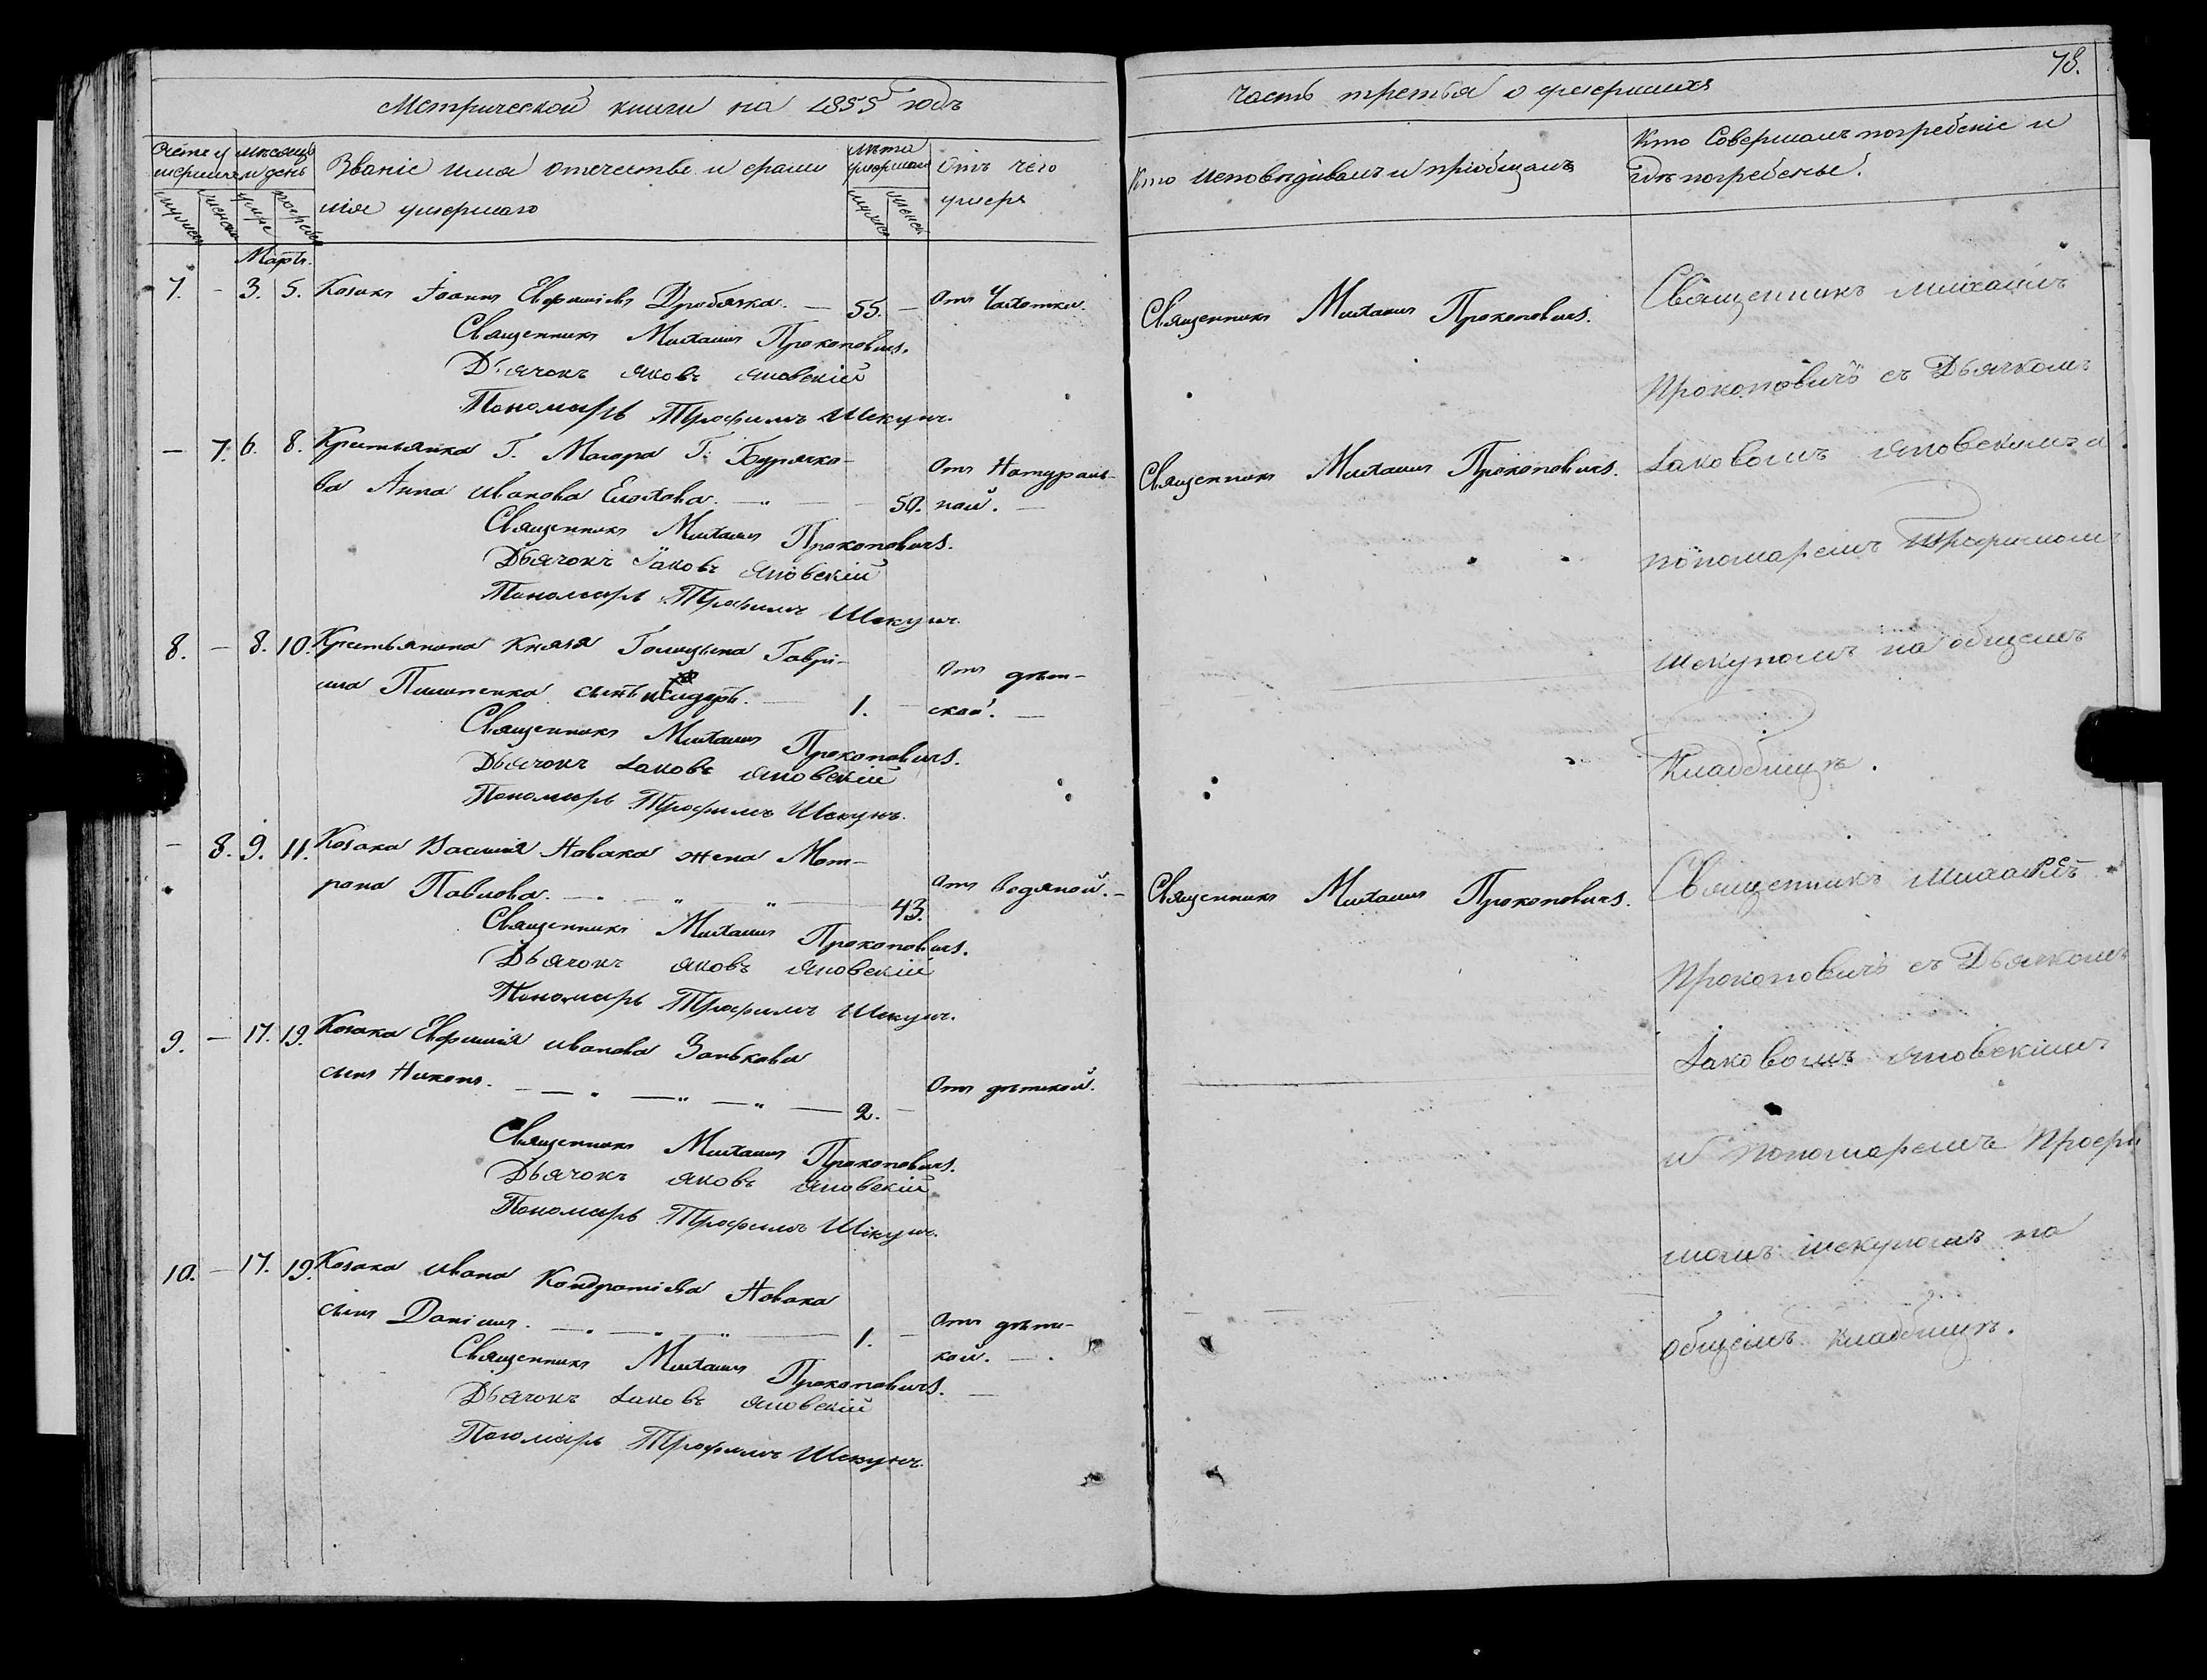 Метрической книги на 1855 годъ
Счетъ у мѣсяцъ
мершихъ и день
мужеск женск умре погребен
Званіе имя отечество и фами
лія умершаго
лѣта
умершаго
мужеск женск
Отъ чего
умеръ
Мартъ.
7. - 3. 5. Козакъ Іоаннъ Евфиміевъ Дробязка. — 55. — Отъ Чахотки.
Священникъ Михаилъ Прокоповичъ.
Дьячокъ Яковъ Яновскій
Пономарь Трофимъ Шекунъ.
— 7. 6. 8. Крестьянка Г. Маіора Г. Бурячко-
ва Анна Иванова — 50. Отъ Натураль-
ной. —
Священникъ Михаилъ Прокоповичъ.
Дьячокъ Іаковъ Яновскій
Пономарь Трофимъ Шекунъ.
8. — 8. 10. Крестьянина Князя Голицына Гаври-
ила Пилипенка сынъ Исидоръ. — 1. — Отъ дѣт-
ской. —
Священникъ Михаилъ Прокоповичъ.
Дьячокъ Іаковъ Яновскій
Пономарь Трофимъ Шекунъ.
— 8. 9. 11. Козака Василія Новака жена Мот-
рона Павлова. — 43. Отъ водяной. —
Священникъ Михаилъ Прокоповичъ.
Дьячокъ Яковъ Яновскій
Пономарь Трофимъ Шекунъ.
9. — 17. 19. Козака Евфимія Иванова Занькова
сынъ Никонъ. — 2. — Отъ дѣтской.
Священникъ Михаилъ Прокоповичъ.
Дьячокъ Яковъ Яновскій
Пономарь Трофимъ Шекунъ.
10. — 17. 19. Козака Ивана Кондратіева Новака
сынъ Даніилъ. — 1. — Отъ дѣтс-
кой. —
Священникъ Михаилъ Прокоповичъ. —
Дьячокъ Іаковъ Яновскій
Пономарь Трофимъ Шекунъ.
78.
часть третья о умершихъ
Кто Исповѣдывалъ и пріобщалъ
Кто Совершалъ погребеніе и
гдѣ погребены.
Священникъ Михаилъ Прокоповичъ.
Священникъ Михаилъ Прокоповичъ.
Священникъ Михаилъ Прокоповичъ.
Священникъ Михаилъ
Прокоповичъ съ Дьячкомъ
Іаковомъ Яновскимъ и
пономаремъ Трофимомъ
Шекуномъ на общемъ
Кладбищѣ.
Священникъ Михаилъ
Прокоповичъ съ Дьячкомъ
Іаковомъ Яновскимъ
и Пономаремъ Трофи
момъ Шекуномъ на
общемъ Кладбищѣ.